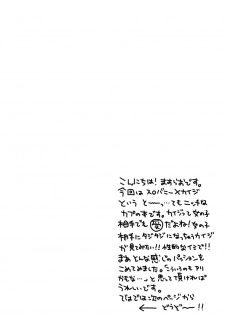 こんにちは!ますらおです。
今回はスロバニー×カイジ
という と~っ…てもニッチな
カプの本です。カイジって女の子
相手でも受だよね!女の子
相手にタジタジになっちゃうカイジ
が見てみたい!!性的なイミで!!
まぁ そんな感じのパッションを
こめてみました。こういうのもアリ
かもな…、と思って頂ければ
うれしいです。
ではでは次のページから
← どうぞ~!!